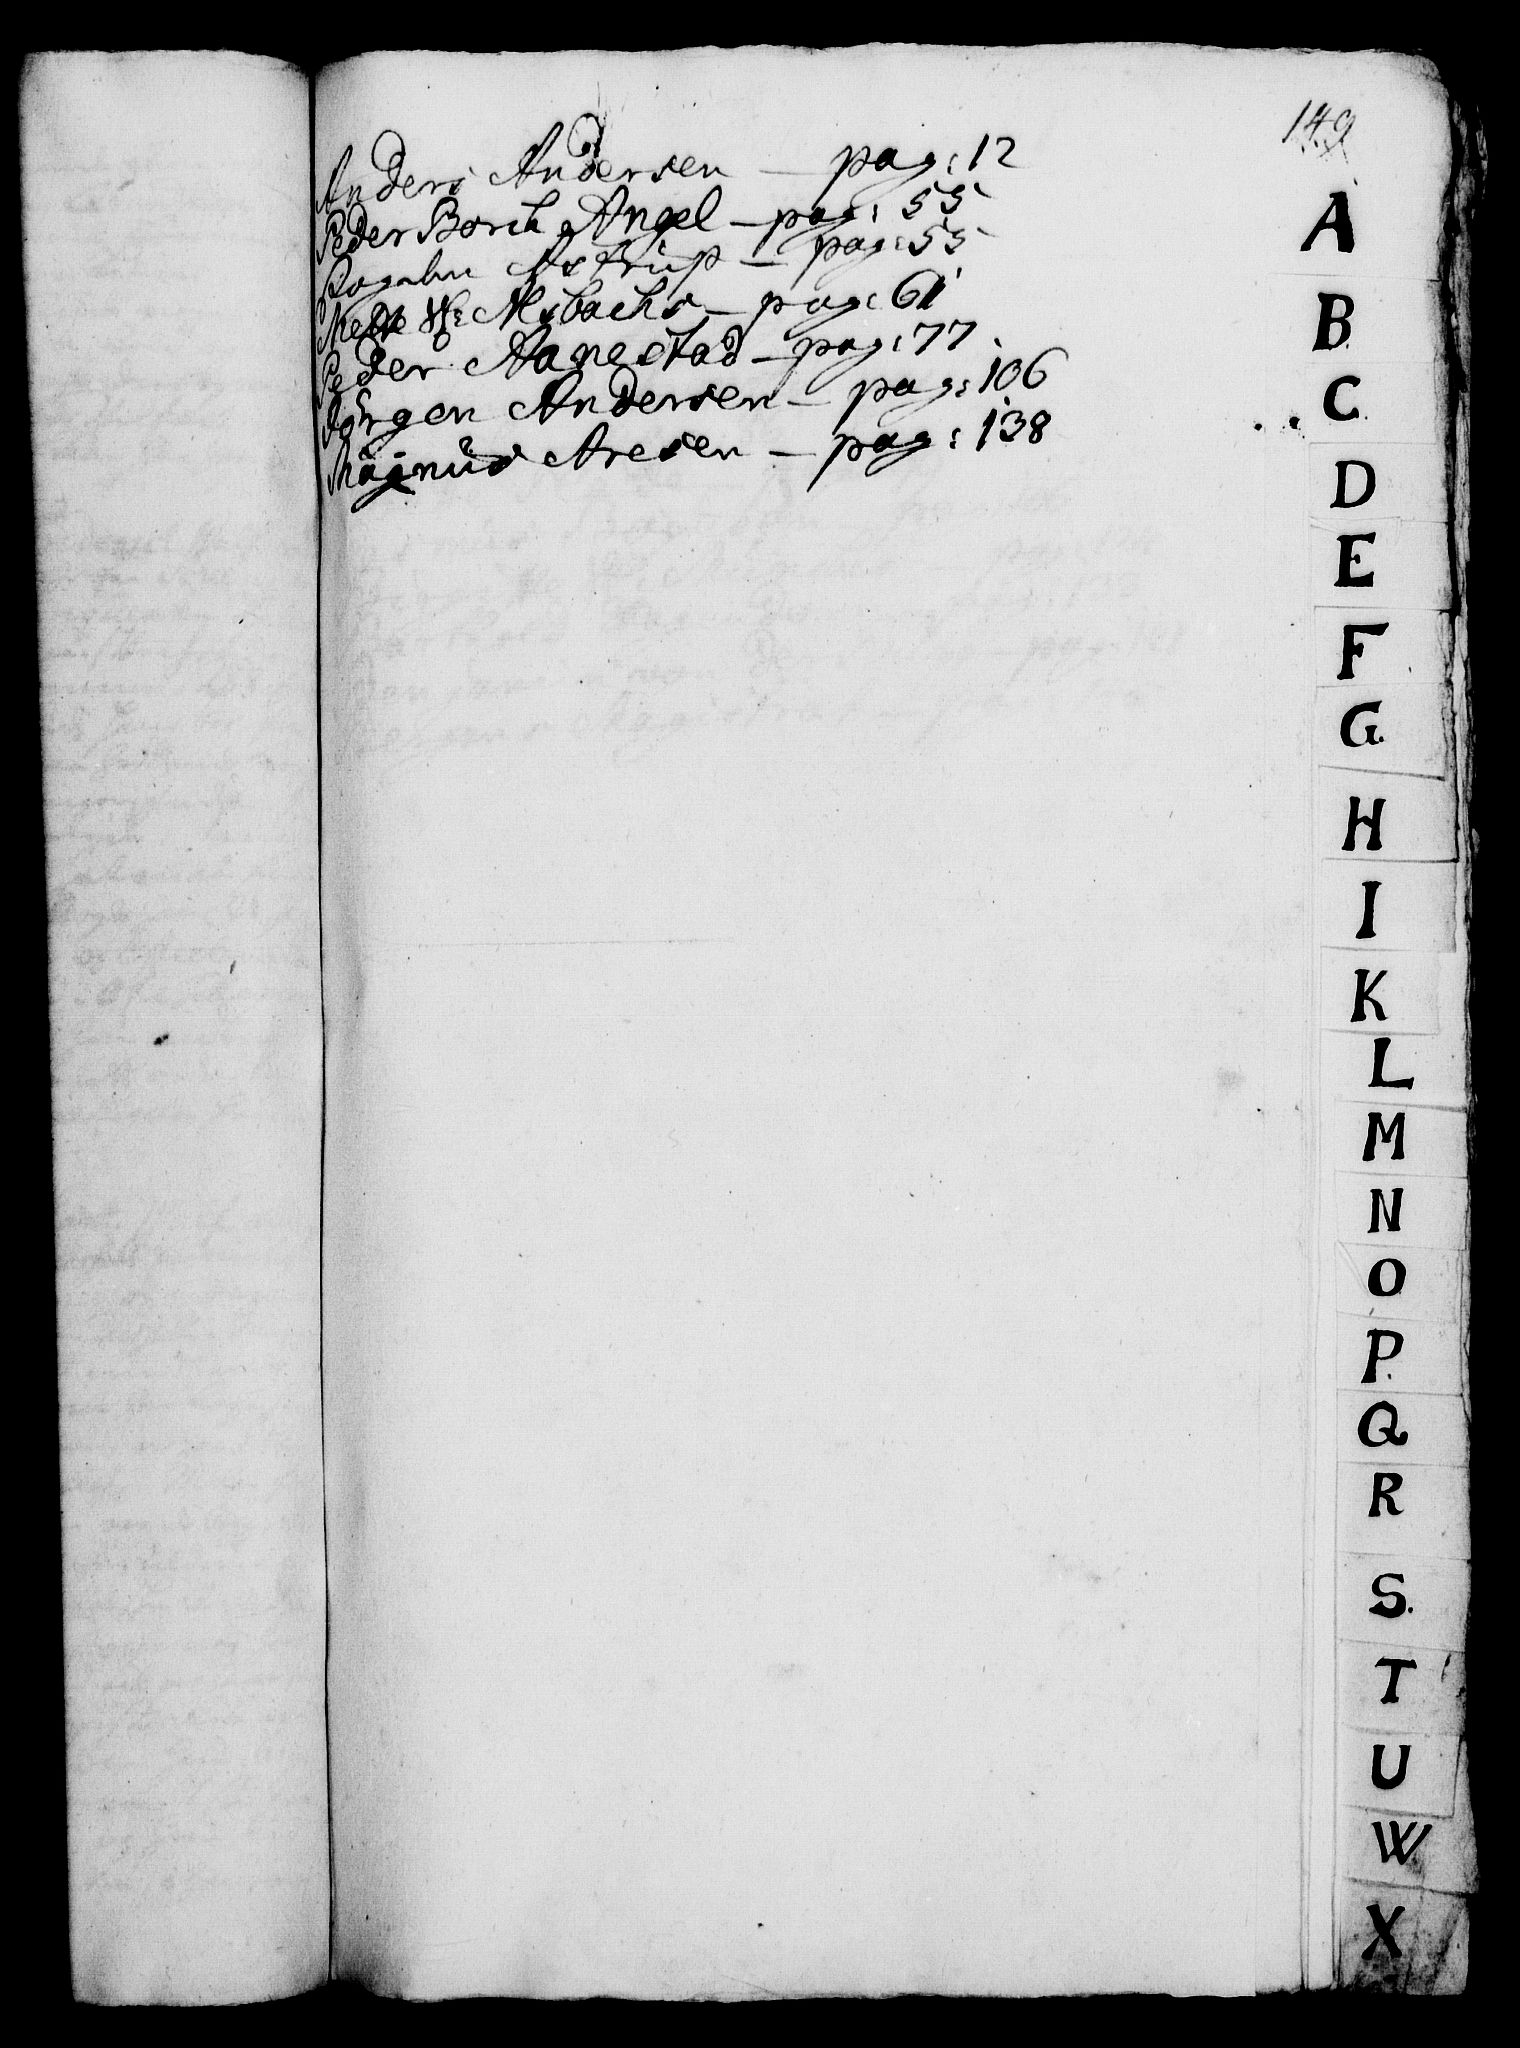 149
Anders Andersen — pag: 12
Peder Borch Angel — pag: 55
Astrup — pag: 55
Mette — pag: 61
Peder Aanestad — pag: 77
Jörgen Andersen — pag: 106
Magnus Aresen — pag: 138
A
B.
C.
D
E
F
G.
H
I
K
L
M
N
O
P.
Q
R
S.
T
U
W.
X